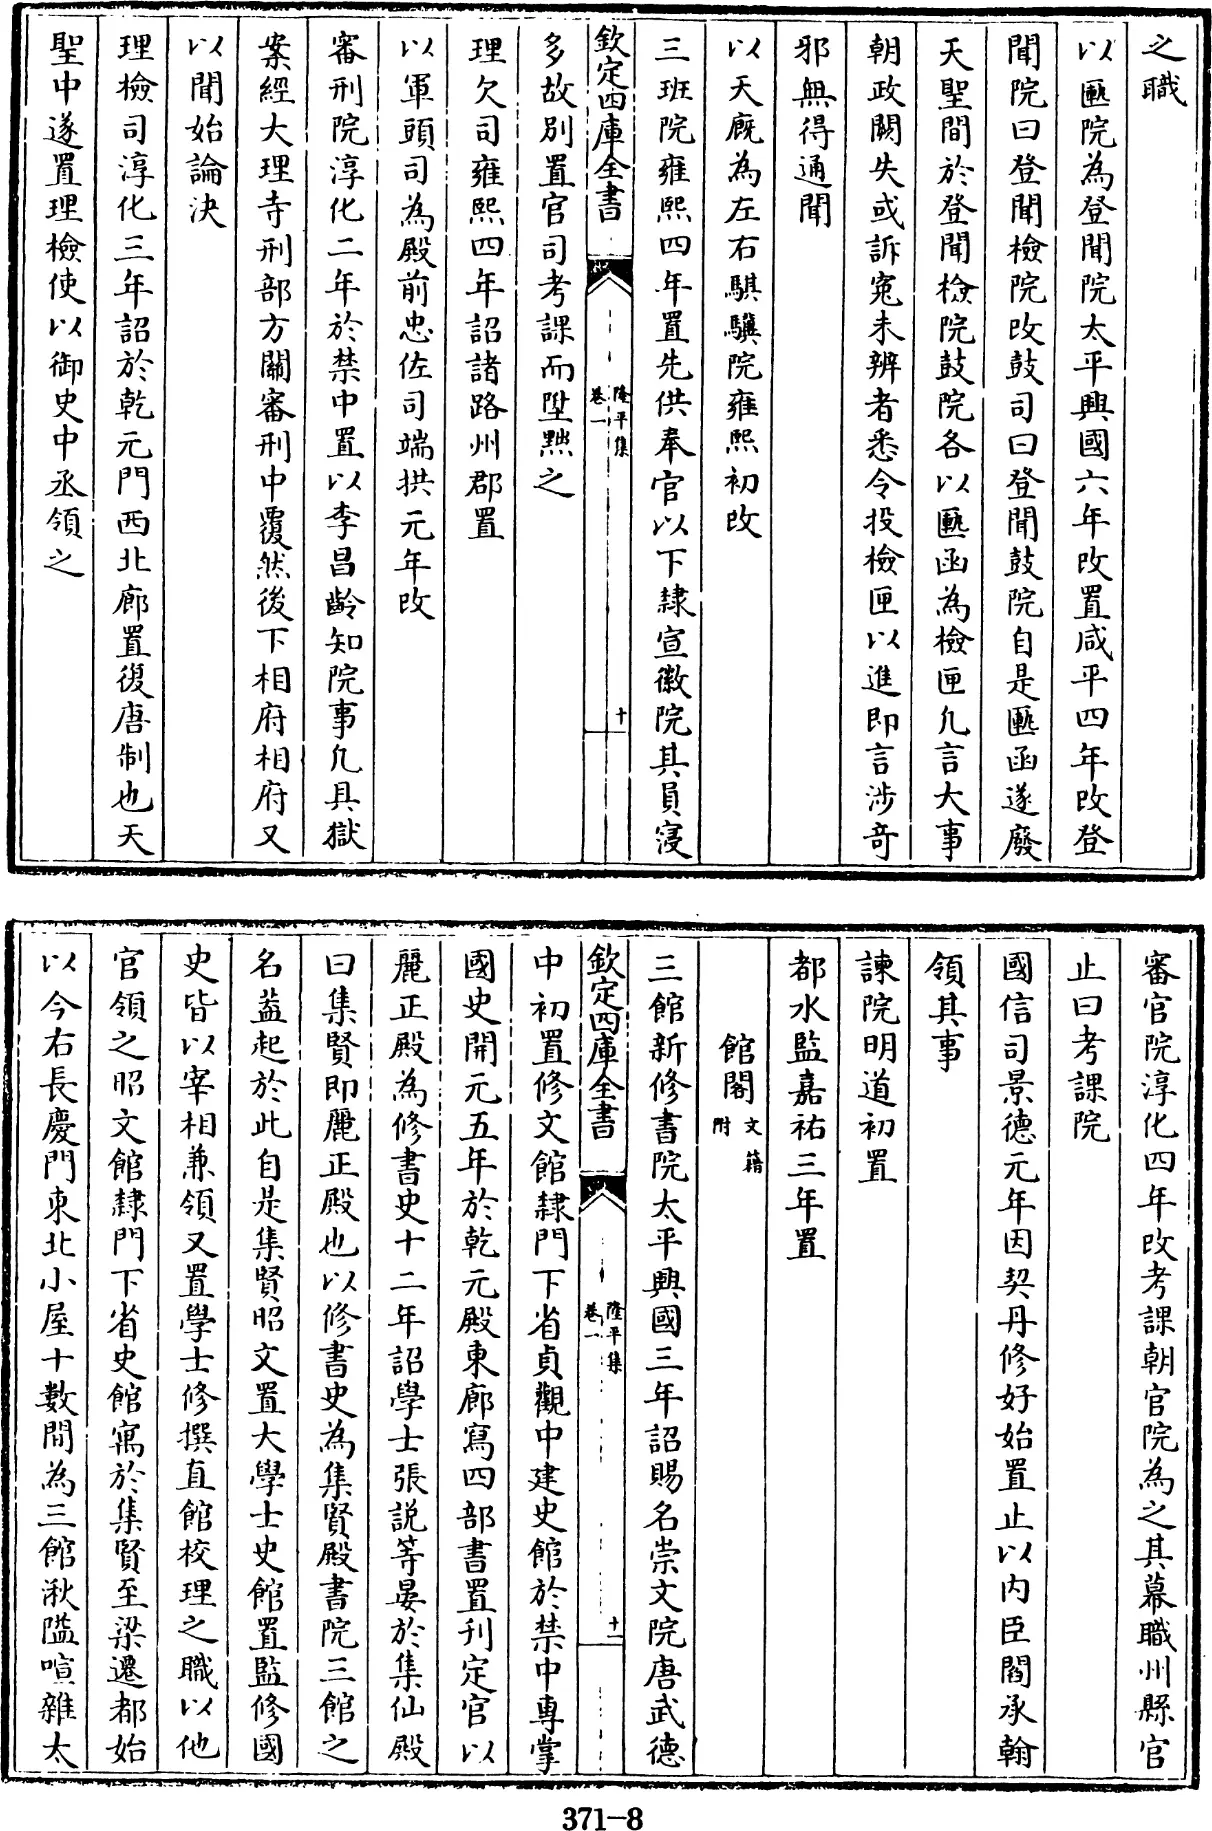 之職
以匭院為登聞院太平興國六年改置咸平四年改登
聞院曰登聞檢院改鼓司曰登聞鼓院自是匭函遂廢
天聖間於登聞檢院鼓院各以匭函為檢匣凡言大事
朝政闕失或訴寃未辨者悉令投檢匣以進即言涉竒
邪無得通聞
以天廐為左右騏驥院雍熙初改
三班院雍熙四年置先供奉官以下隷宣徽院其員寖
欽定四庫全書
隆平集
卷一
十
多故別置官司考課而陞黜之
理欠司雍熙四年詔諸路州郡置
以軍頭司為殿前忠佐司端拱元年改
審刑院淳化二年於禁中置以李昌齡知院事凡具獄
案經大理寺刑部方關審刑中覆然後下相府相府又
以聞始論決
理檢司淳化三年詔於乾元門西北廊置復唐制也天
聖中遂置理檢使以御史中丞領之
審官院淳化四年改考課朝官院為之其幕職州縣官
止曰考課院
國信司景德元年因契丹修好始置止以内臣閻承翰
領其事
諫院明道初置
都水監嘉祐三年置
館閣文籍附
三館新修書院太平興國三年詔賜名崇文院唐武德
欽定四庫全書
隆平集
卷一
十一
中初置修文館隷門下省貞觀中建史館於禁中專掌
國史開元五年於乾元殿東廊寫四部書置刋定官以
麗正殿為修書史十二年詔學士張説等晏於集仙殿
曰集賢即麗正殿也以修書史為集賢殿書院三館之
名葢起於此自是集賢昭文置大學士史館置監修國
史皆以宰相兼領又置學士修撰直館校理之職以他
官領之昭文館隷門下省史館寓於集賢至梁遷都始
以今右長慶門東北小屋十數間為三館湫隘喧雜太
371-8